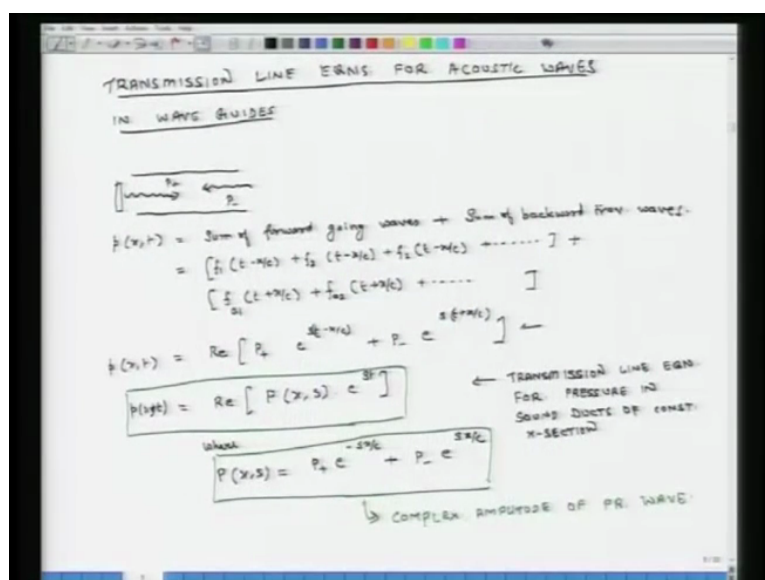 TRANSMISSION LINE EQNS FOR ACOUSTIC WAVES
IN WAVE GUIDES
P+
P-
p(x,t) = Sum of forward going waves + Sum of backward trav waves.
= [f1 (t-x/c) + f2 (t-x/c) + f3 (t-x/c) + ...... ] +
[ (t+x/c) + (t+x/c) + ...... ]
p(x,t) = Re [ P+ e^s(t-x/c) + P- e^s(t+x/c) ] ←
p(x,t) = Re [ P(x,s) e^st ]
← TRANSMISSION LINE EQN
FOR PRESSURE IN
SOUND DUCTS OF CONST.
X-SECTION
where
P(x,s) = P+ e^-sx/c + P- e^sx/c
↳ COMPLEX AMPLITUDE OF PR. WAVE.